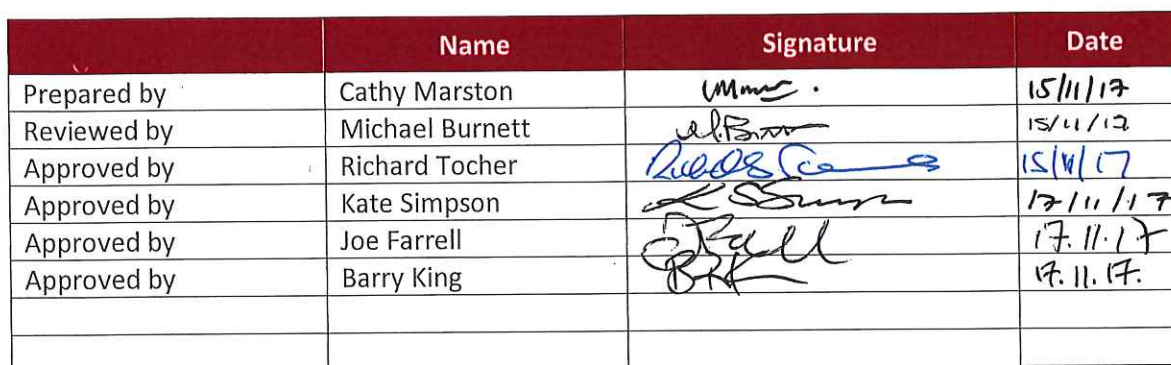 Name Signature Date
Prepared by Cathy Marston 15/11/17
Reviewed by Michael Burnett 15/11/17
Approved by Richard Tocher 15/11/17
Approved by Kate Simpson 17/11/17
Approved by Joe Farrell 17.11.17
Approved by Barry King 17.11.17.